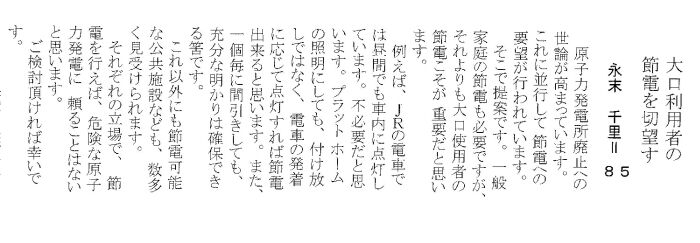 大口利用者の
節電を切望す
永末 千里＝
８５
原子力発電所廃止への
世論が高まっています。
これに並行して、節電への
要望が行われています。
そこで提案です。一般
家庭の節電も必要ですが、
それよりも大口使用者の
節電こそが 重要だと思い
ます。
例えば、ＪＲの電車で
は昼間でも車内に点灯し
ています。不必要だと思
います。プラットホーム
の照明にしても、付け放
しではなく、電車の発着
に応じて点灯すれば節電
出来ると思います。また、
一個毎に間引きしても、
充分な明かりは確保でき
る筈です。
これ以外にも節電可能
な公共施設なども、数多
く見受けられます。
それぞれの立場で、節
電を行えば、危険な原子
力発電に 頼ることはない
と思います。
ご検討頂ければ幸いで
す。